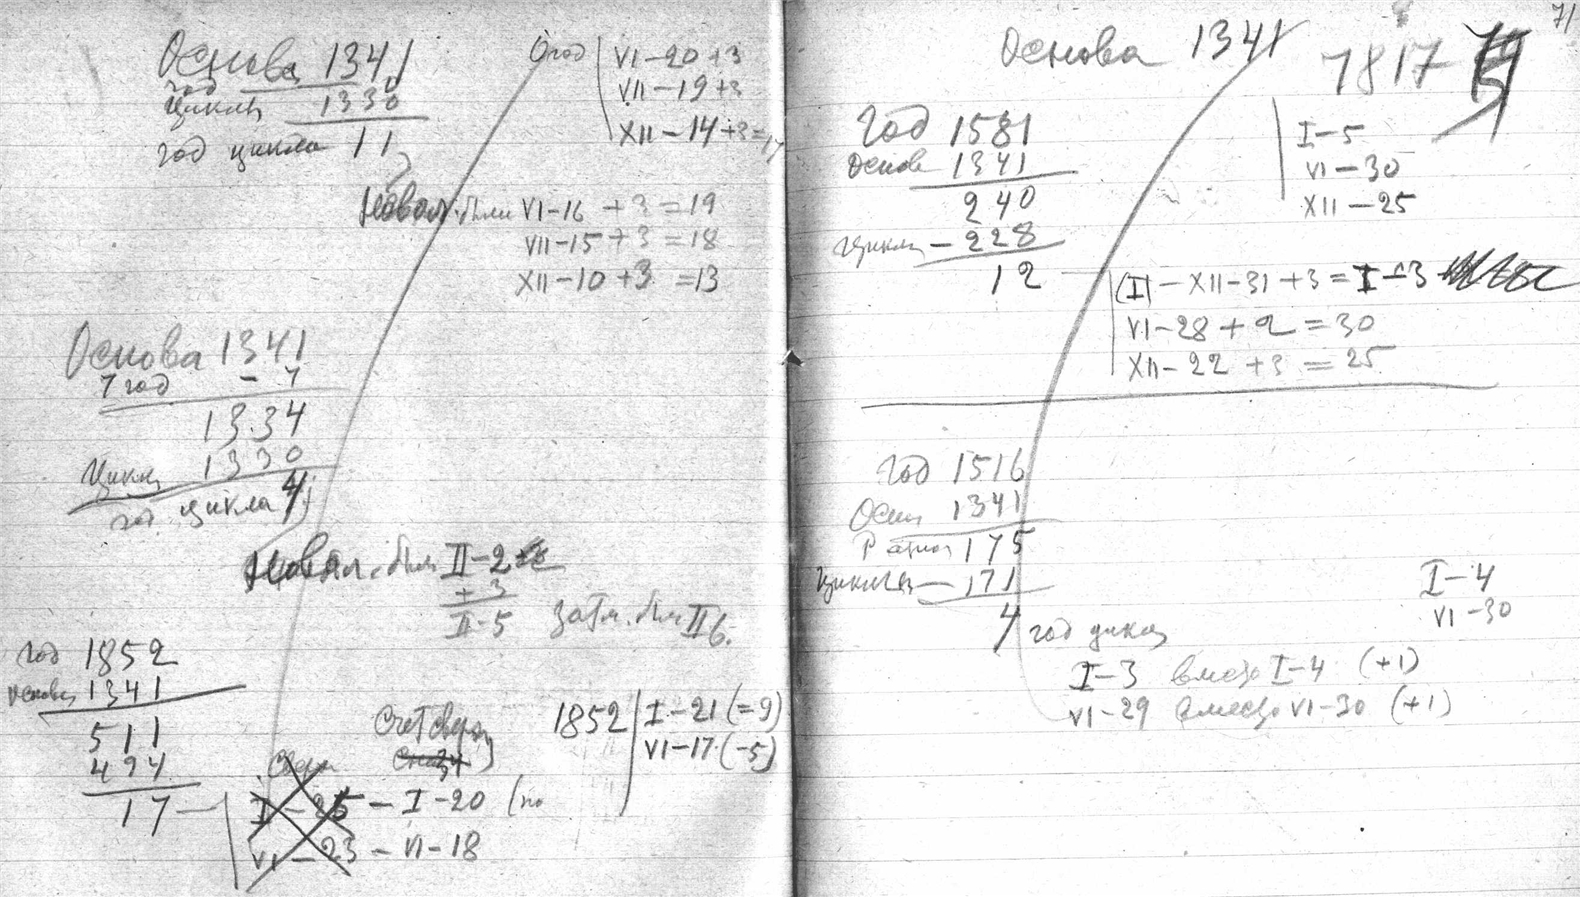 Основа 1341
год
циклы 1330
год цикла 11
0 год VI-20+3
VII-19+3
XII-14+3=17
VI-16 +3=19
VII-15+3=18
XII-10+3=13
Основа 1341
7 год - 7
1334
Цикл 1330
год цикла 4
II-2
+3
II-5 II 6.
год 1852
основа 1341
511
494
17
I-25 - I-20 (по
VI-23 - VI-18
Счет сверху
1852 I-21 (=9)
VI-17 (-5)
71
Основа 1341
7817
Год 1581
Основ 1341
240
Циклы -228
12
I-5
VI-30
XII-25
(I) - XII-31 +3 = I-3
VI-28 + 2 = 30
XII-22 +3 = 25
Год 1516
Осн 1341
175
циклы -171
4 год цикла
I-4
VI-30
I-3 вместо I-4 (+1)
VI-29 вместо VI-30 (+1)